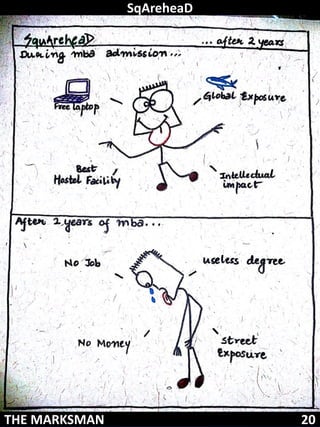 SqAreheaD
SquAreheaD
... after 2 years
During mba admission...
Free laptop
Global Exposure
Best
Hostel Facility
Intellectual
impact
After 2 years of mba...
No Job
useless degree
No Money
street
Exposure
THE MARKSMAN
20